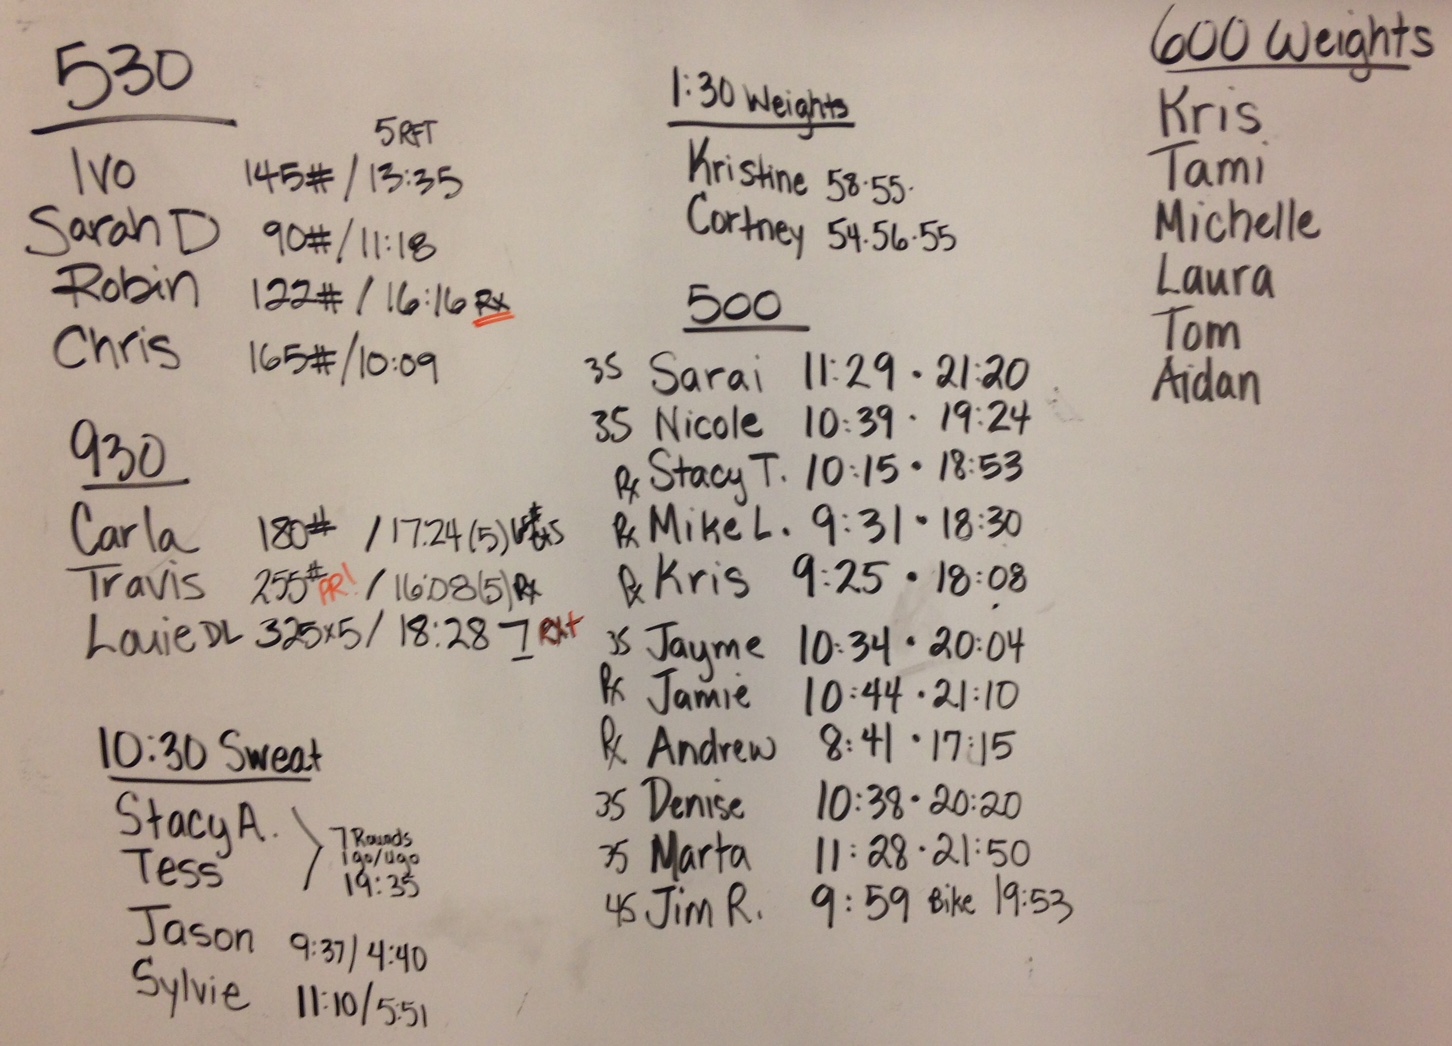 530
5 RFT
Ivo 145# / 13:35
Sarah D 90# / 11:18
Robin 122# / 16:16 Rx
Chris 165# / 10:09
930
Carla 180# / 17:24 (5)
Travis 255# PR! / 16:08 (5) Rx
Louie DL 325x5 / 18:28 7 Rx+
10:30 Sweat
Stacy A.
Tess
7 Rounds
1go/ugo
19:35
Jason 9:37 / 4:40
Sylvie 11:10 / 5:51
1:30 Weights
Kristine 58·55·
Cortney 54·56·55
500
35 Sarai 11:29 · 21:20
35 Nicole 10:39 · 19:24
Rx Stacy T. 10:15 · 18:53
Rx Mike L. 9:31 · 18:30
Rx Kris 9:25 · 18:08
35 Jayme 10:34 · 20:04
Rx Jamie 10:44 · 21:10
Rx Andrew 8:41 · 17:15
35 Denise 10:38 · 20:20
35 Marta 11:28 · 21:50
45 Jim R. 9:59 Bike 19:53
600 Weights
Kris
Tami
Michelle
Laura
Tom
Aidan